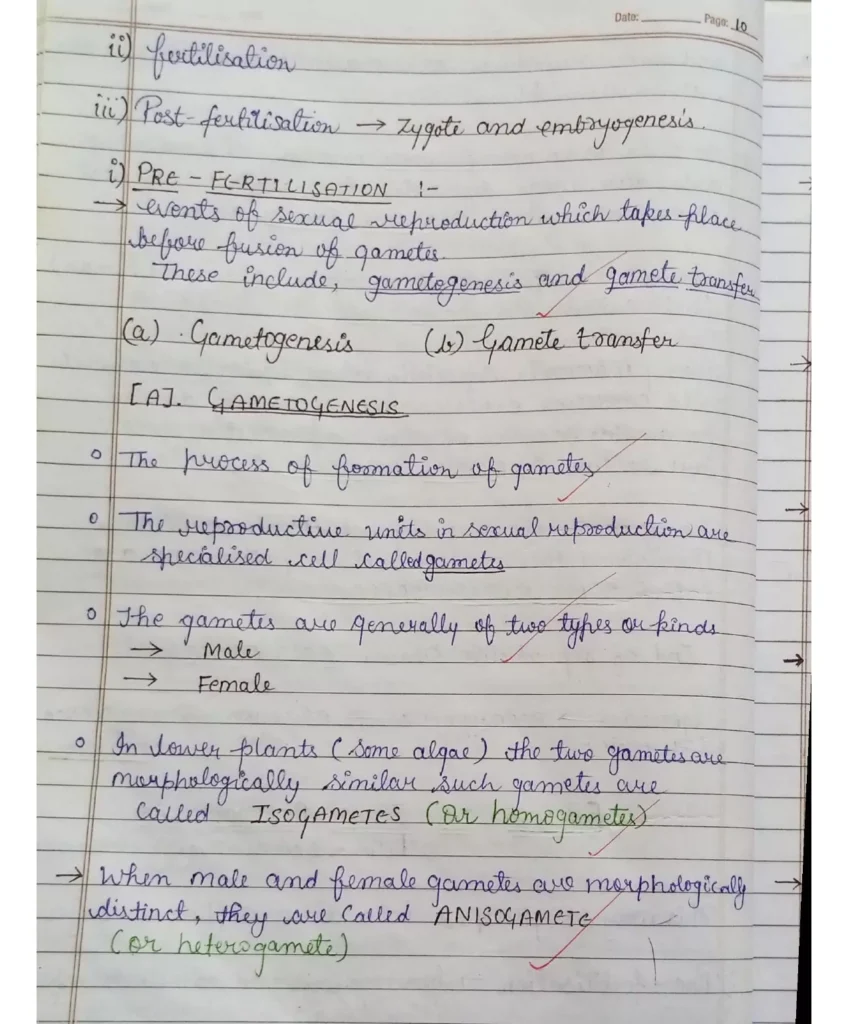 Date: Page: 10
ii) fertilisation
iii) Post-fertilisation → zygote and embryogenesis.
i) PRE - FERTILISATION :-
→ events of sexual reproduction which takes place
before fusion of gametes.
These include, gametogenesis and gamete transfer
(a) . Gametogenesis (b) Gamete transfer
[A]. GAMETOGENESIS
o The process of formation of gametes
o The reproductive units in sexual reproduction are
specialised cell called gametes
o The gametes are generally of two types or kinds
→ Male
→ Female
o In lower plants (some algae) the two gametes are
morphologically similar such gametes are
called ISOGAMETES (or homogametes)
→ When male and female gametes are morphologically
distinct, they are called ANISOGAMETE
(or heterogamete)